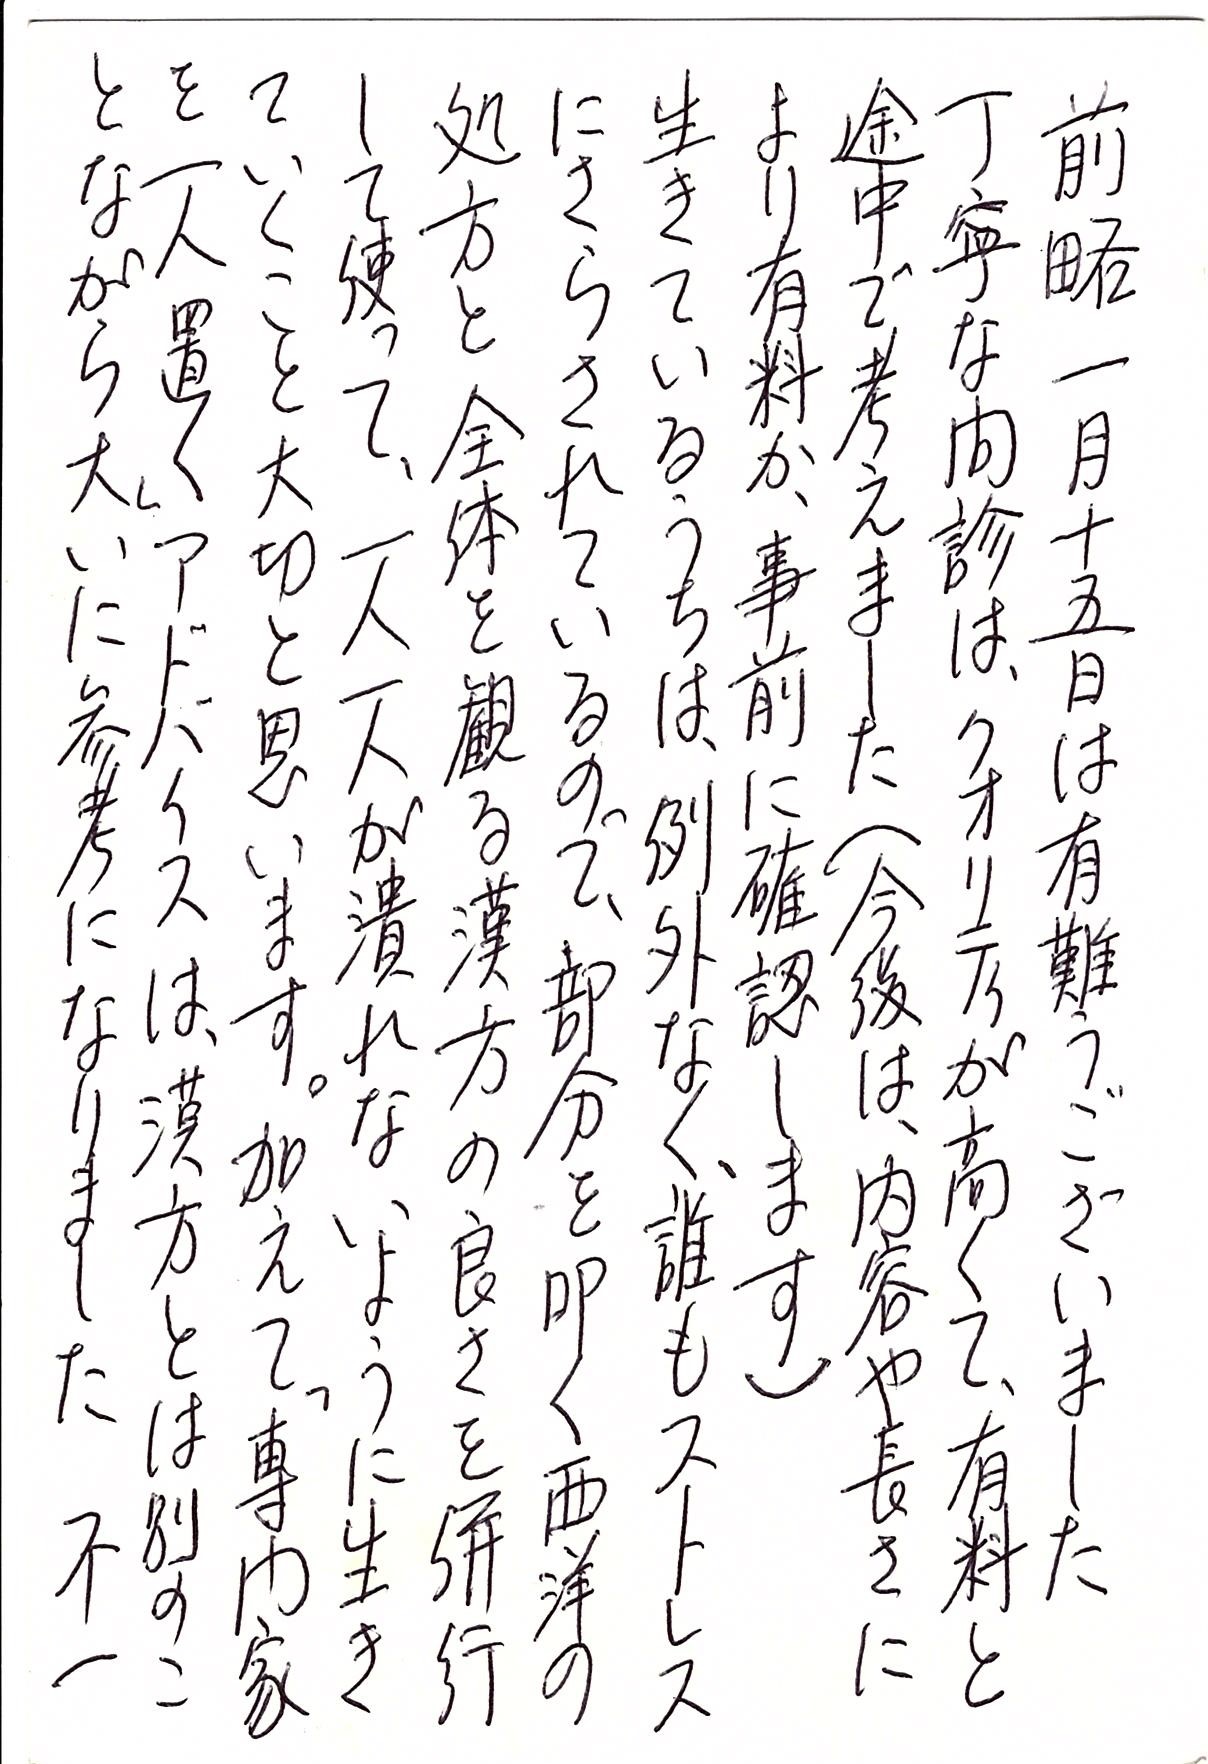 前略 一月十五日は有難うございました
丁寧な内診は、クオリティが高くて、有料と
途中で考えました（今後は、内容や長さに
より有料か、事前に確認します）
生きているうちは、例外なく、誰もストレス
にさらされているので、部分を叩く西洋の
処方と全体を観る漢方の良さを併行
して使って、一人一人が潰れないように生き
ていくこと大切と思います。加えて、「専门家
を一人置く」アドバイスは、漢方とは別のこ
とながら大いに参考になりました 不一